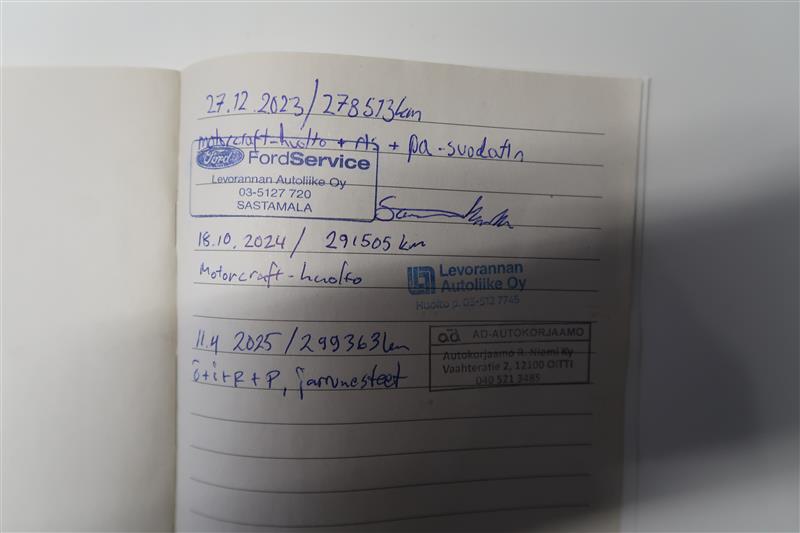 27.12.2023/278513km
motorcraft-huolto + + pa-suodatin
Ford FordService
Levorannan Autoliike Oy
03-5127 720
SASTAMALA
18.10.2024/ 291505 km
Motorcraft-huolto
Levorannan
Autoliike Oy
Huolto p. 03-512 7745
11.4 2025/299363km
ö+i+R+P, jarrunesteet
ad AD-AUTOKORJAAMO
Autokorjaamo R. Niemi Ky
Vaahteratie 2, 12100 OITTI
040 521 3485